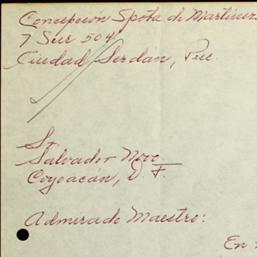 Concepción Spota de Martínez
7 Sur 504
Ciudad Serdán, Pue.
Sr.
Salvador Novo
Coyoacán, D. F.
Admirado Maestro:
En